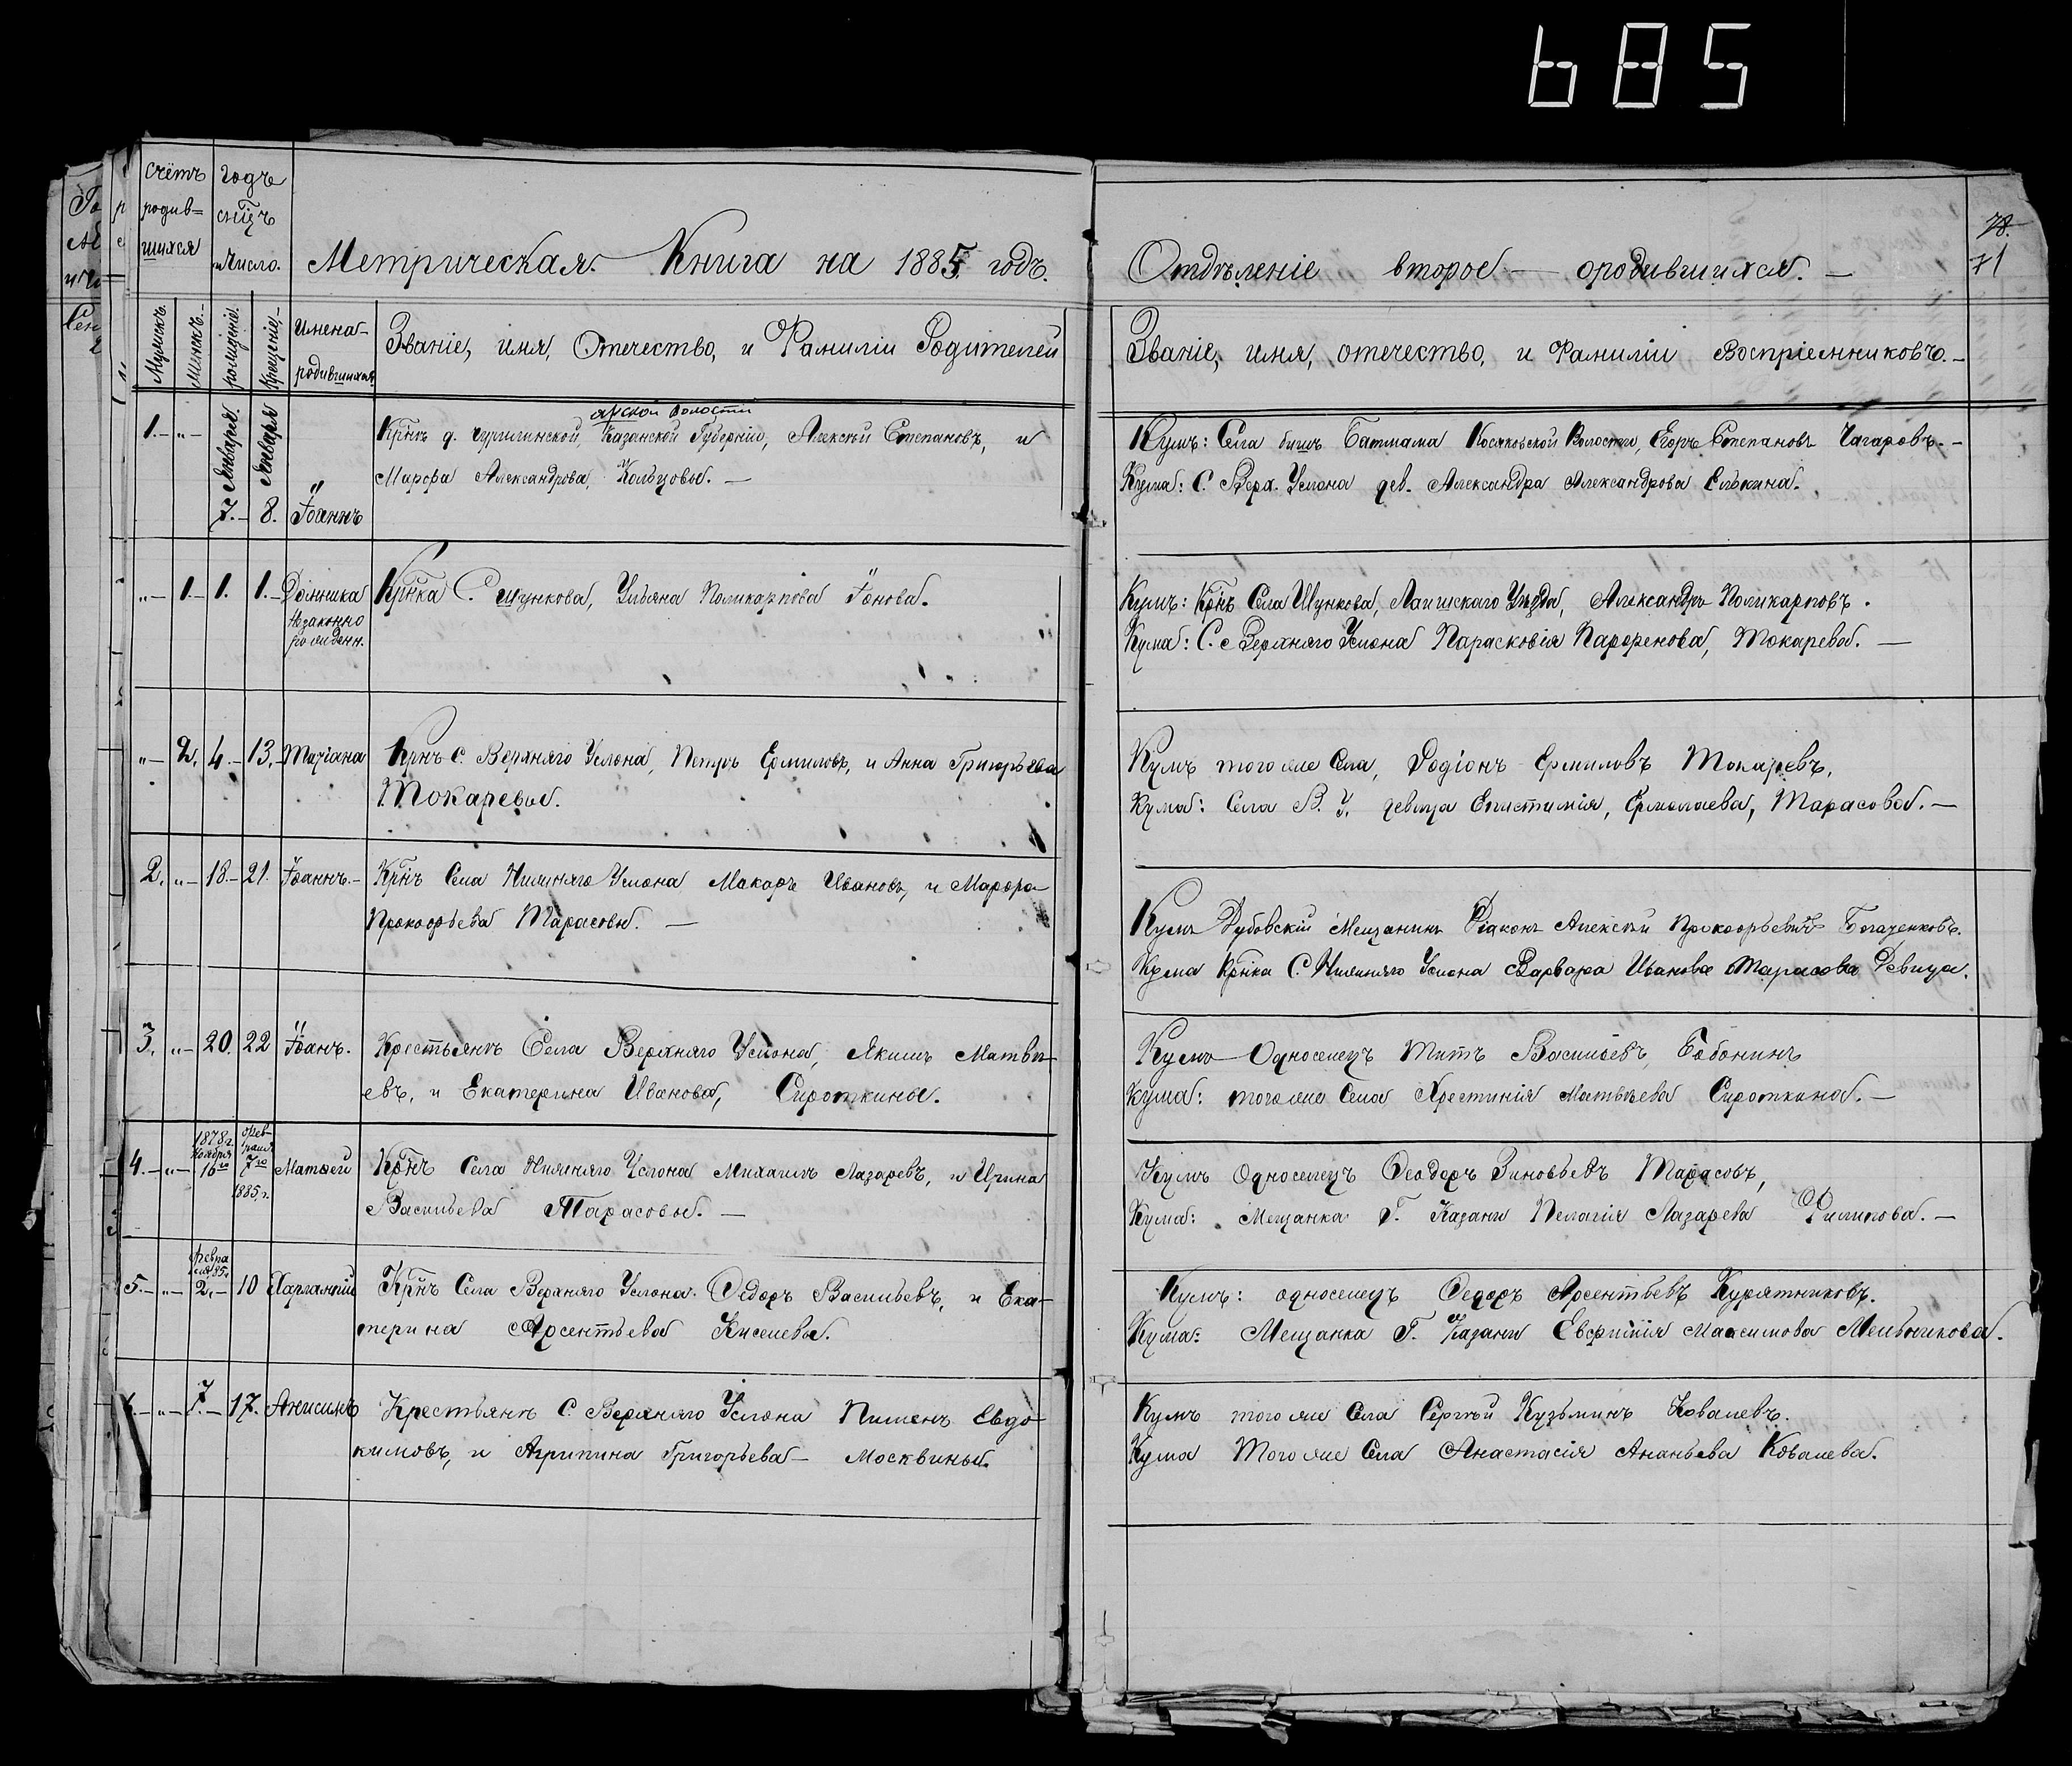 685
78.
71
счётъ родив=шихся
годъ мсцъ и число.
Метрическая Книга на 1885 годъ.
Отдѣленіе второе — ородившихся. —
Мужск.
Женскъ.
рожщеніе.
Крещеніе.
имена родившихся
Званіе, имя, Отечество, и Фамиліи Родителей
Званіе, имя, отечество, и Фамиліи Воспріемниковъ. —
1. — „ — Января 7. — Января 8. Іоаннъ
арской волости
Крнъ д. Казанской Губерніи, Алексѣй Степановъ, и
Марфа Александрова, Кольцовы. —
Кумъ: Села Батмама Волости, Егоръ Степановъ Чагаровъ. —
Кума: С. Верх. Услона дев. Александра Александрова Елькина.
„ — 1. — 1. 1. — Домника Незаконно рожденн.
Крнка С. Шункова, Ульяна Поликарпова Іонова.
Кумъ: Крнъ Села Шункова, Лаишскаго Уѣзда, Александръ Поликарповъ.
Кума: С. Верхняго Услона Парасковія Парфенова, Токарева. —
„ — 2. 4. — 13. — Татіана
Крнъ С. Верхняго Услона, Петръ Ермиловъ, и Анна Григорьева
Токаревы.
Кумъ того же Села, Родіонъ Ермиловъ Токаревъ,
Кума: Села В. У. девица Епистимія, Ермолаева, Тарасова. —
2. „ — 18. — 21. Іоаннъ. —
Крнъ Села Нижняго Услона Макаръ Ивановъ, и Марфа
Прокофьева Тарасовы. —
Кумъ Дубовскій Мещанинъ Діаконъ Алексѣй Прокофьевичъ Богаченковъ.
Кума Крнка С. Нижняго Услона Варвара Иванова Тарасова Девица.
3. „ — 20. 22 Іоанъ.
Крестьянъ Села Верхняго Услона, Якимъ Матвѣ-
евъ, и Екатерина Иванова, Сироткины.
Кумъ Односелецъ Титъ Васильевъ, Бабонинъ
Кума: того же Села Хрестинія Матвѣева Сироткина. —
4. — „ — 1878 г. Ноября 16го февраля 7го 1885 г. Матвей
Крнъ Села Нижняго Услона Михаилъ Лазаревъ, и Ирина
Васильева Тарасовы. —
Кумъ Односелецъ Феодоръ Зиновьевъ Тарасовъ,
Кума: Мещанка Г. Казани Пелагія Лазарева Филипова. —
5. — „ — февраля 85 г. 2. — 10 Харлампій
Крнъ Села Верхняго Услона. Федоръ Васильевъ, и Ека-
терина Арсентьева Киселевы.
Кумъ: односелецъ Федоръ Арсентьевъ Курятниковъ.
Кума: Мещанка Г. Казани Евфимія Максимова Мельникова.
6. — „ — 7. — 17. Анисимъ
Крестьянъ С. Верхняго Услона Пименъ Евдо-
кимовъ, и Агрипина Григорьева — Москвины.
Кумъ того же Села Сергѣй Кузьминъ Ковалевъ.
Кума Того же Села Анастасія Ананьева Ковалева.